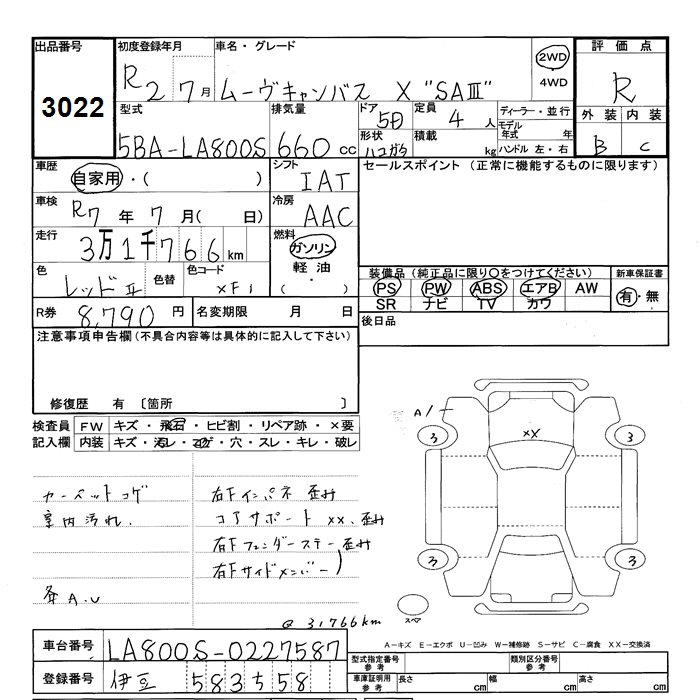 出品番号
3022
初度登録年月
R2 7月
車名・グレード
ムーヴキャンバス X "SAⅢ"
2WD
4WD
評価点
R
外装 内装
B C
型式
5BA-LA800S
排気量
660 cc
ドア
5D
形状
ハコガタ
定員
4人
積載
kg
ディーラー・並行
モデル年式 年
ハンドル 左・右
車歴
自家用・( )
シフト
IAT
セールスポイント (正常に機能するものに限ります)
車検
R7年 7月( 日)
冷房
AAC
走行
3万1千766km
燃料
ガソリン
軽油
( ・ )
色
レッドⅡ
色替
色コード
XF1
装備品(純正品に限り○をつけてください)
PS PW ABS エアB AW
SR ナビ TV カワ
新車保証書
有・無
R券
8,790円
名変期限 月 日
後日品
注意事項申告欄(不具合内容等は具体的に記入して下さい)
修復歴 有 〔箇所 〕
検査員記入欄
FW キズ・飛石・ヒビ割・リペア跡・×要
内装 キズ・汚レ・コゲ・穴・スレ・キレ・破レ
カーペットコゲ
室内汚れ.
各A.U
右Fインパネ 歪み
コアサポート XX、歪み
右Fフェンダーステー 歪み
右Fサイドメンバー)
@ 31766km
A/
XX
3 3
3 3
スペア
A-キズ E-エクボ U-凹み W-補修跡 S-サビ C-腐食 XX-交換済
車台番号
LA800S-0227587
登録番号
伊豆 583 58
型式指定番号 参考
類別区分番号 参考
車庫証明用 参考
長さ cm 幅 cm 高さ cm